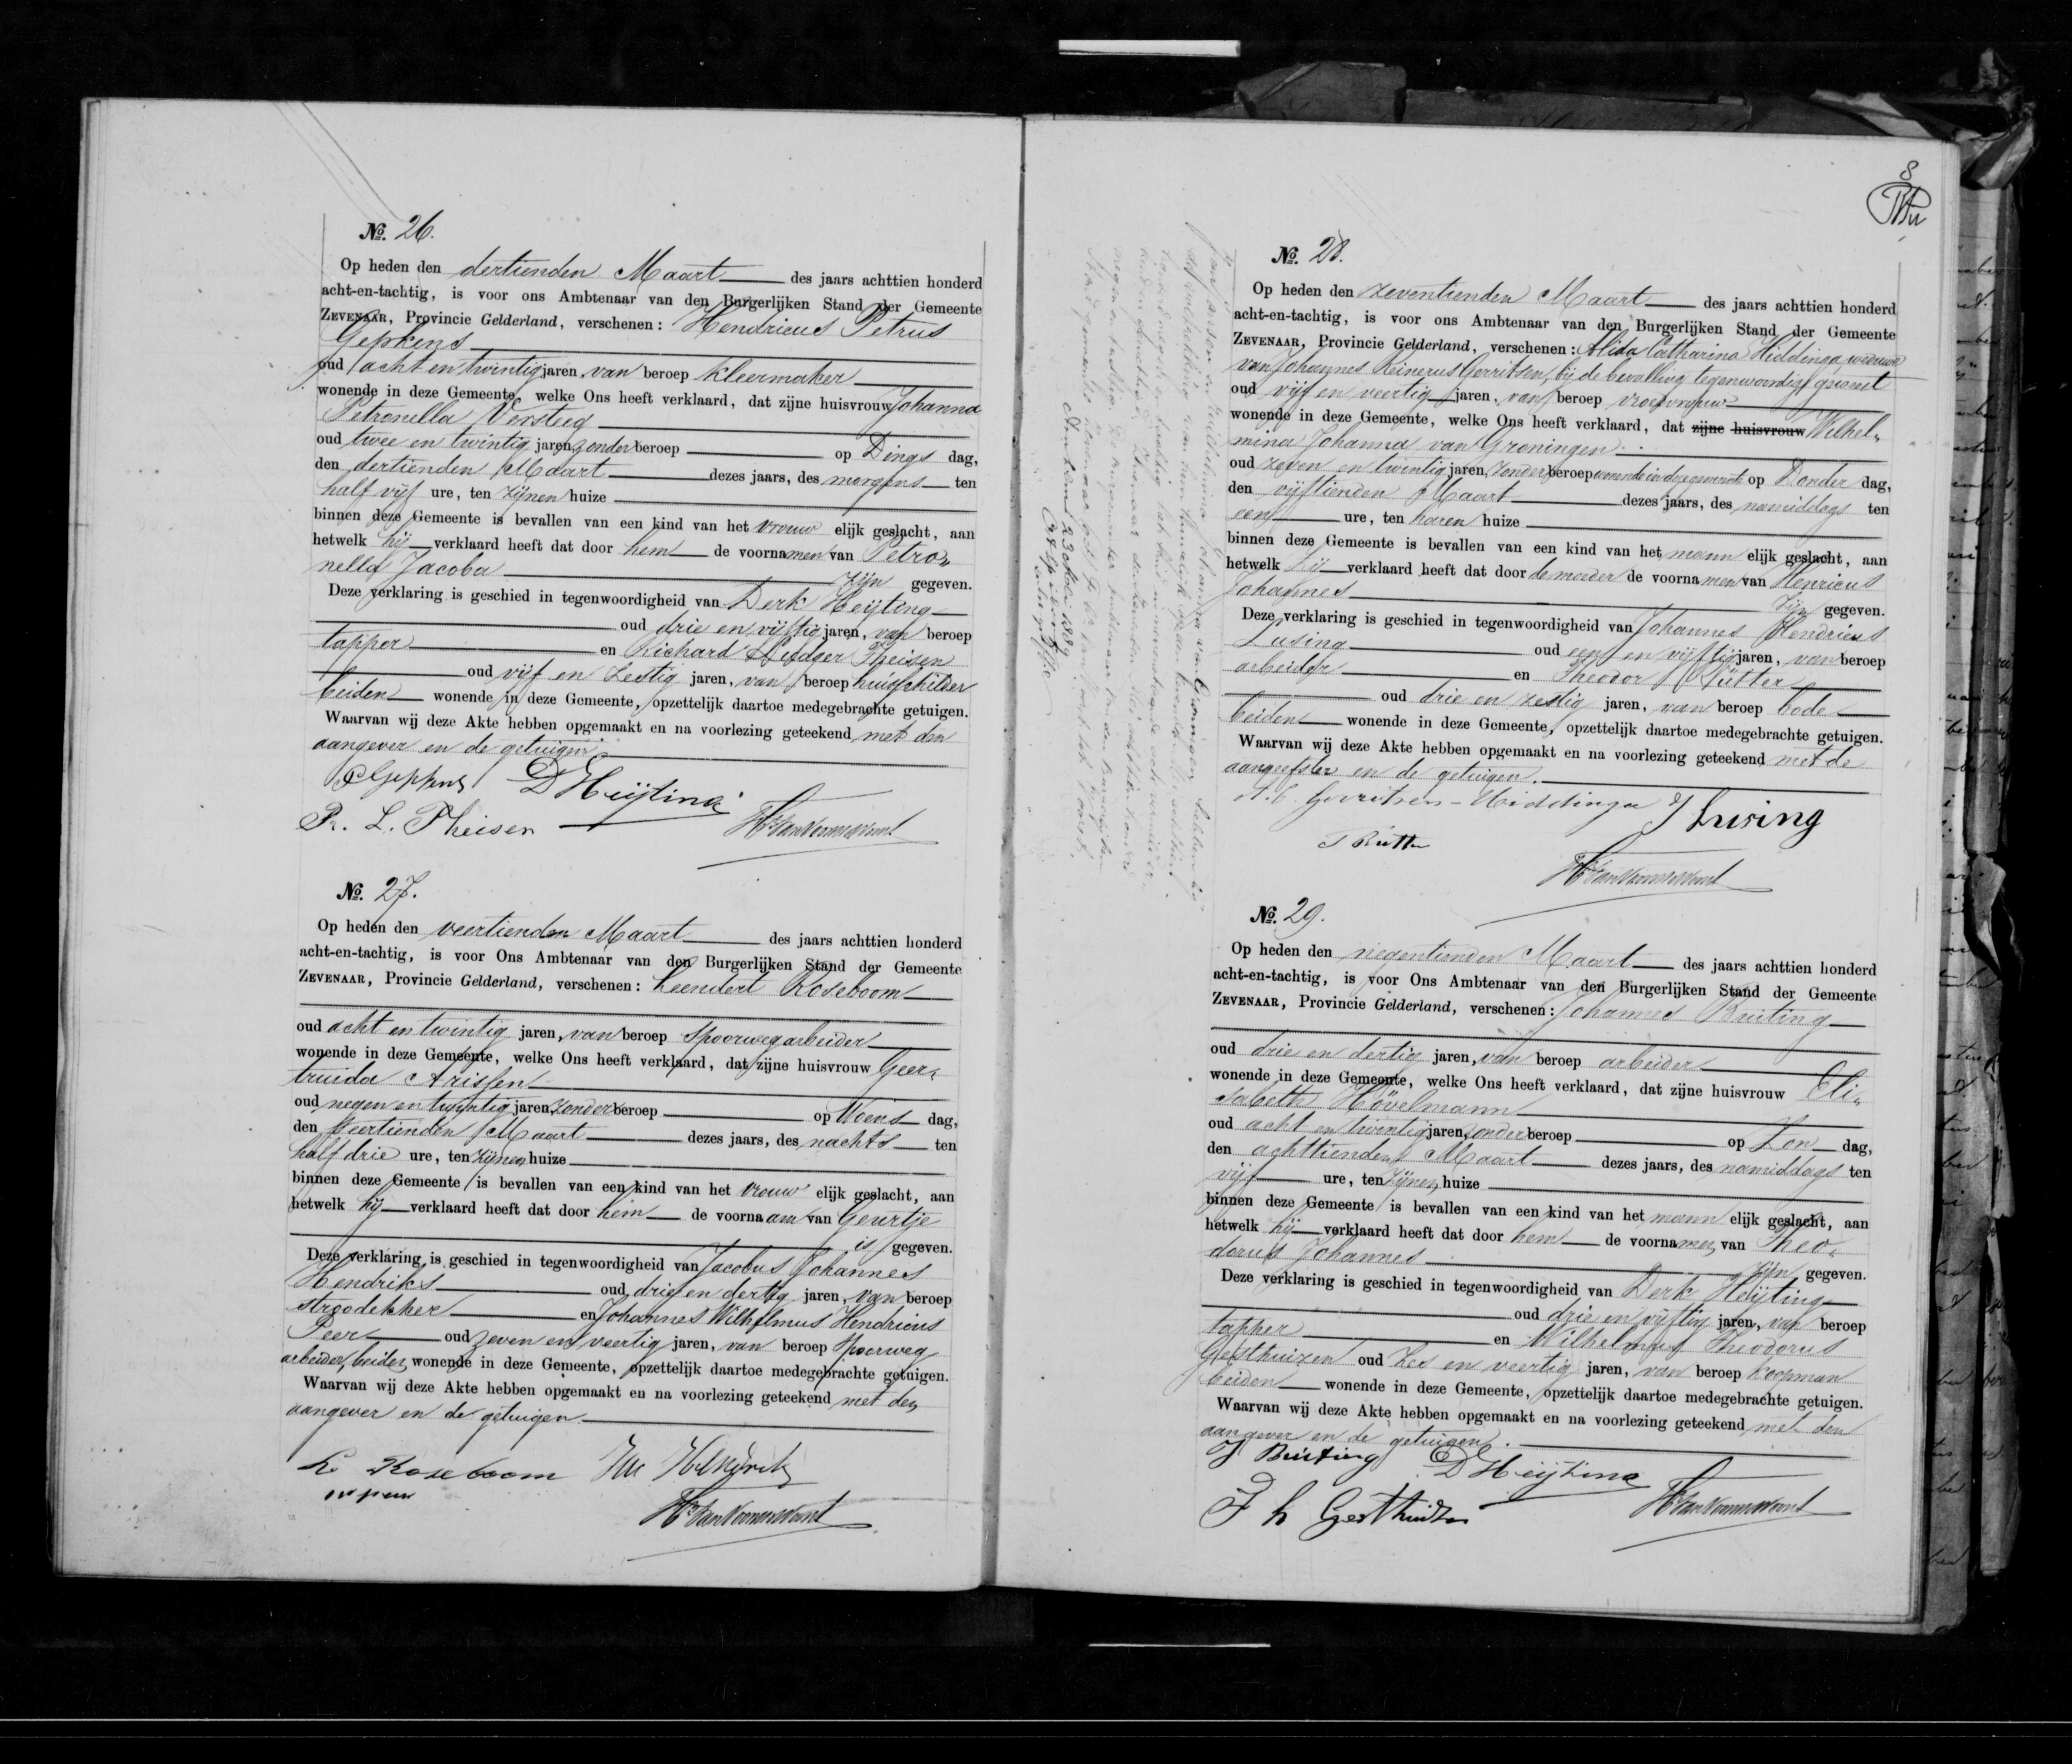 No. 26.
Op heden den dertienden Maart des jaars achttien honderd
acht-en-tachtig, is voor ons Ambtenaar van den Burgerlijken Stand der Gemeente
ZEVENAAR, Provincie Gelderland, verschenen: Hendricus Petrus
Gepkens
oud acht en twintig jaren, van beroep kleermaker
wonende in deze Gemeente, welke Ons heeft verklaard, dat zijne huisvrouw Johanna
Petronella Versteeg
oud twee en twintig jaren zonder beroep op Dings dag,
den dertienden Maart dezes jaars, des morgens ten
half vijf ure, ten zijnen huize
binnen deze Gemeente is bevallen van een kind van het vrouw elijk geslacht, aan
hetwelk hij verklaard heeft dat door hem de voornamen van Petro„
nella Jacoba
zijn gegeven.
Deze verklaring is geschied in tegenwoordigheid van Derk Heijting
oud drie en vijftig jaren, van beroep
tapper en Richard Ludger Theisen
oud vijf en zestig jaren, van beroep huisschilder
beiden wonende in deze Gemeente, opzettelijk daartoe medegebrachte getuigen.
Waarvan wij deze Akte hebben opgemaakt en na voorlezing geteekend met den
aangever en de getuigen.
D Heijting
R. L. Theisen
No. 27.
Op heden den veertienden Maart des jaars achttien honderd
acht-en-tachtig, is voor Ons Ambtenaar van den Burgerlijken Stand der Gemeente
ZEVENAAR, Provincie Gelderland, verschenen: Leendert Roseboom
oud acht en twintig jaren, van beroep Spoorwegarbeider
wonende in deze Gemeente, welke Ons heeft verklaard, dat zijne huisvrouw Geer„
truida Arissen
oud negen en twintig jaren zonder beroep op Woens dag,
den veertienden Maart dezes jaars, des nachts ten
half drie ure, ten zijnen huize
binnen deze Gemeente is bevallen van een kind van het vrouw elijk geslacht, aan
hetwelk hij verklaard heeft dat door hem de voornaam van Geurtje
is gegeven.
Deze verklaring is geschied in tegenwoordigheid van Jacobus Johannes
Hendriks oud drie en dertig jaren, van beroep
stroodekker en Johannes Wilhelmus Hendricus
Peer oud zeven en veertig jaren, van beroep Spoorweg
arbeider, beiden wonende in deze Gemeente, opzettelijk daartoe medegebrachte getuigen.
Waarvan wij deze Akte hebben opgemaakt en na voorlezing geteekend met den
aangever en de getuigen.
L Roseboom
8
No. 28.
Op heden den zeventienden Maart des jaars achttien honderd
acht-en-tachtig, is voor ons Ambtenaar van den Burgerlijken Stand der Gemeente
ZEVENAAR, Provincie Gelderland, verschenen: Alida Catharina Hiddinga, weduwe
van Johannes Reinerus Gerritsen, bij de bevalling tegenwoordig geweest
oud vijf en veertig jaren, van beroep vroedvrouw
wonende in deze Gemeente, welke Ons heeft verklaard, dat zijne huisvrouw Wilhel„
mina Johanna van Groningen
oud zeven en twintig jaren, zonder beroep wonende in deze gemeente op Donder dag,
den vijftienden Maart dezes jaars, des namiddags ten
een ure, ten haren huize
binnen deze Gemeente is bevallen van een kind van het mann elijk geslacht, aan
hetwelk zij verklaard heeft dat door de moeder de voornamen van Henricus
Johannes
zijn gegeven.
Deze verklaring is geschied in tegenwoordigheid van Johannes Hendricus
Lusing oud een en vijftig jaren, van beroep
arbeider en Theodor Rütter
oud drie en zestig jaren, van beroep bode
beiden wonende in deze Gemeente, opzettelijk daartoe medegebrachte getuigen.
Waarvan wij deze Akte hebben opgemaakt en na voorlezing geteekend met de
aangeefster en de getuigen.
A. C. Gerritsen-Hiddinga J Lusing
T Rütter
No. 29.
Op heden den negentienden Maart des jaars achttien honderd
acht-en-tachtig, is voor Ons Ambtenaar van den Burgerlijken Stand der Gemeente
ZEVENAAR, Provincie Gelderland, verschenen: Johannes Bruiting
oud drie en dertig jaren, van beroep arbeider
wonende in deze Gemeente, welke Ons heeft verklaard, dat zijne huisvrouw Eli„
sabeth Hövelmann
oud acht en twintig jaren, zonder beroep op Zon dag,
den achttienden Maart dezes jaars, des namiddags ten
vijf ure, ten zijnen huize
binnen deze Gemeente is bevallen van een kind van het mann elijk geslacht, aan
hetwelk hij verklaard heeft dat door hem de voornamen van Theo„
dorus Johannes
zijn gegeven.
Deze verklaring is geschied in tegenwoordigheid van Derk Heijting
oud drie en vijftig jaren, van beroep
tapper en Wilhelmus Theodorus
Gesthuizen oud zes en veertig jaren, van beroep koopman
beiden wonende in deze Gemeente, opzettelijk daartoe medegebrachte getuigen.
Waarvan wij deze Akte hebben opgemaakt en na voorlezing geteekend met den
aangever en de getuigen.
J Bruiting D Heijting